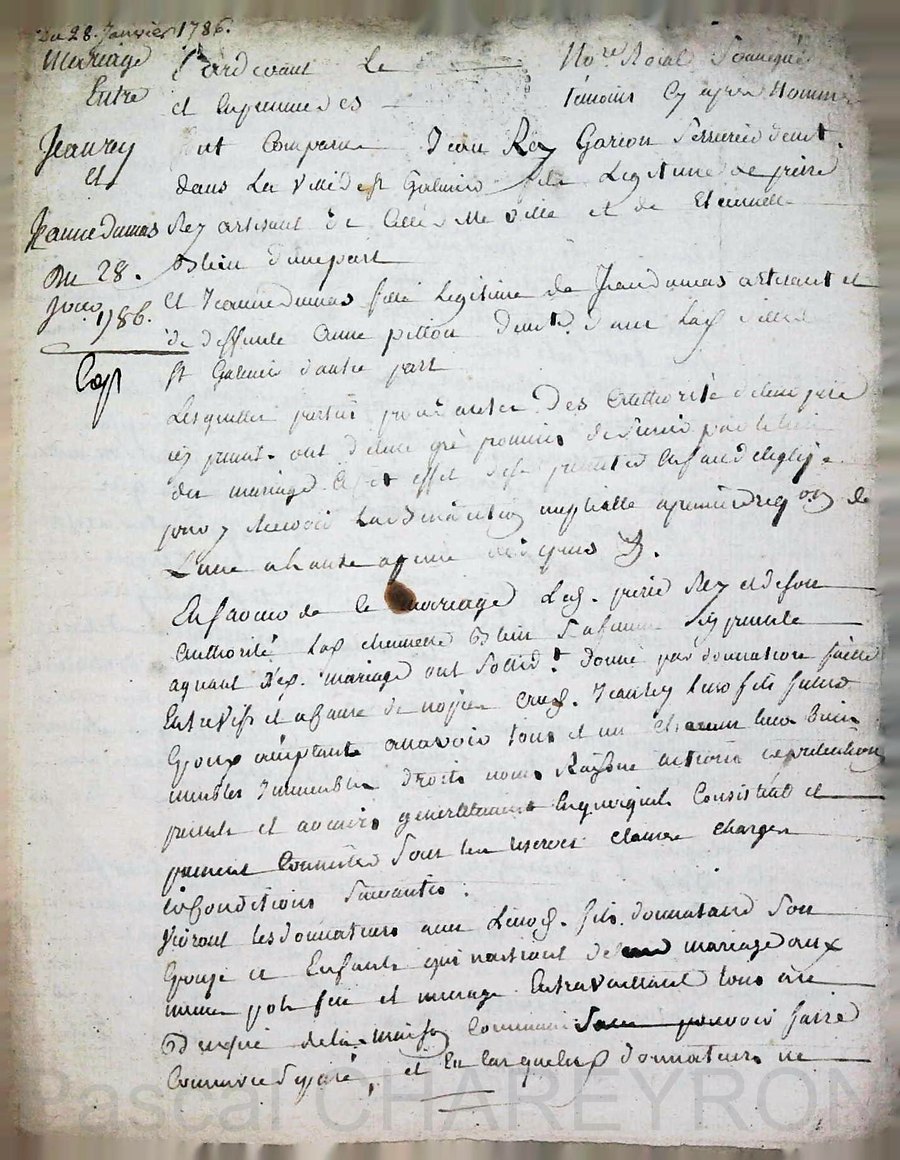 Du 28. Janvier 1786.
Mariage
Entre
Jean rey
et
Jeanne dumas
Du 28.
1786.
Pardevant Le No.re Roial Soussigné
et En presence des témoins Cy apres Nommes
ont Comparu Jean Rey Garçon demt.
dans La Ville de st Galmier fils Legitime de pierre
Rey artisant de Cette ville et de
Blein d'une part
Et Jeanne dumas fille Legitime de Jean dumas artisant et
de deffunte anne demt. dans Lad. ville de
st Galmier d'autre part
Lesquelles parties de L'authorité de leur pere
ont de leur gré promis de s'unir par le lien
du mariage Et a cet effet de se presenter En face d'eglise
pour y Recevoir La Benediction nuptialle a premiere reqon de
L'une a L'autre a peine de
En faveur de Ce mariage Led. pierre Rey et de son
authorité Lad. Blein Sa femme Cy presente
agreant Led. mariage ont Solidt. donné par donnation faitte
Entrevifs et a Cause de noces aud. Jean rey Leur fils futur
Epoux acceptant a savoir tous et un Chacun leurs biens
meubles Immeubles droits noms Raisons actions et pretentions
presents et avenirs generallement En quoy quils Consistent et
puissent Consister Sous les reserves clauses charges
et Conditions Suivantes.
Vivront les donnateurs avec Leurd. fils donnataire Son
Epouse et Enfants qui naitront de leur mariage aux
meme pot feu et menage En travaillant tous au
de la maison Commune Sans pouvoir faire
Commerce Separé, et En Cas que Lesd. donnateurs ne
Pascal CHAREYRON